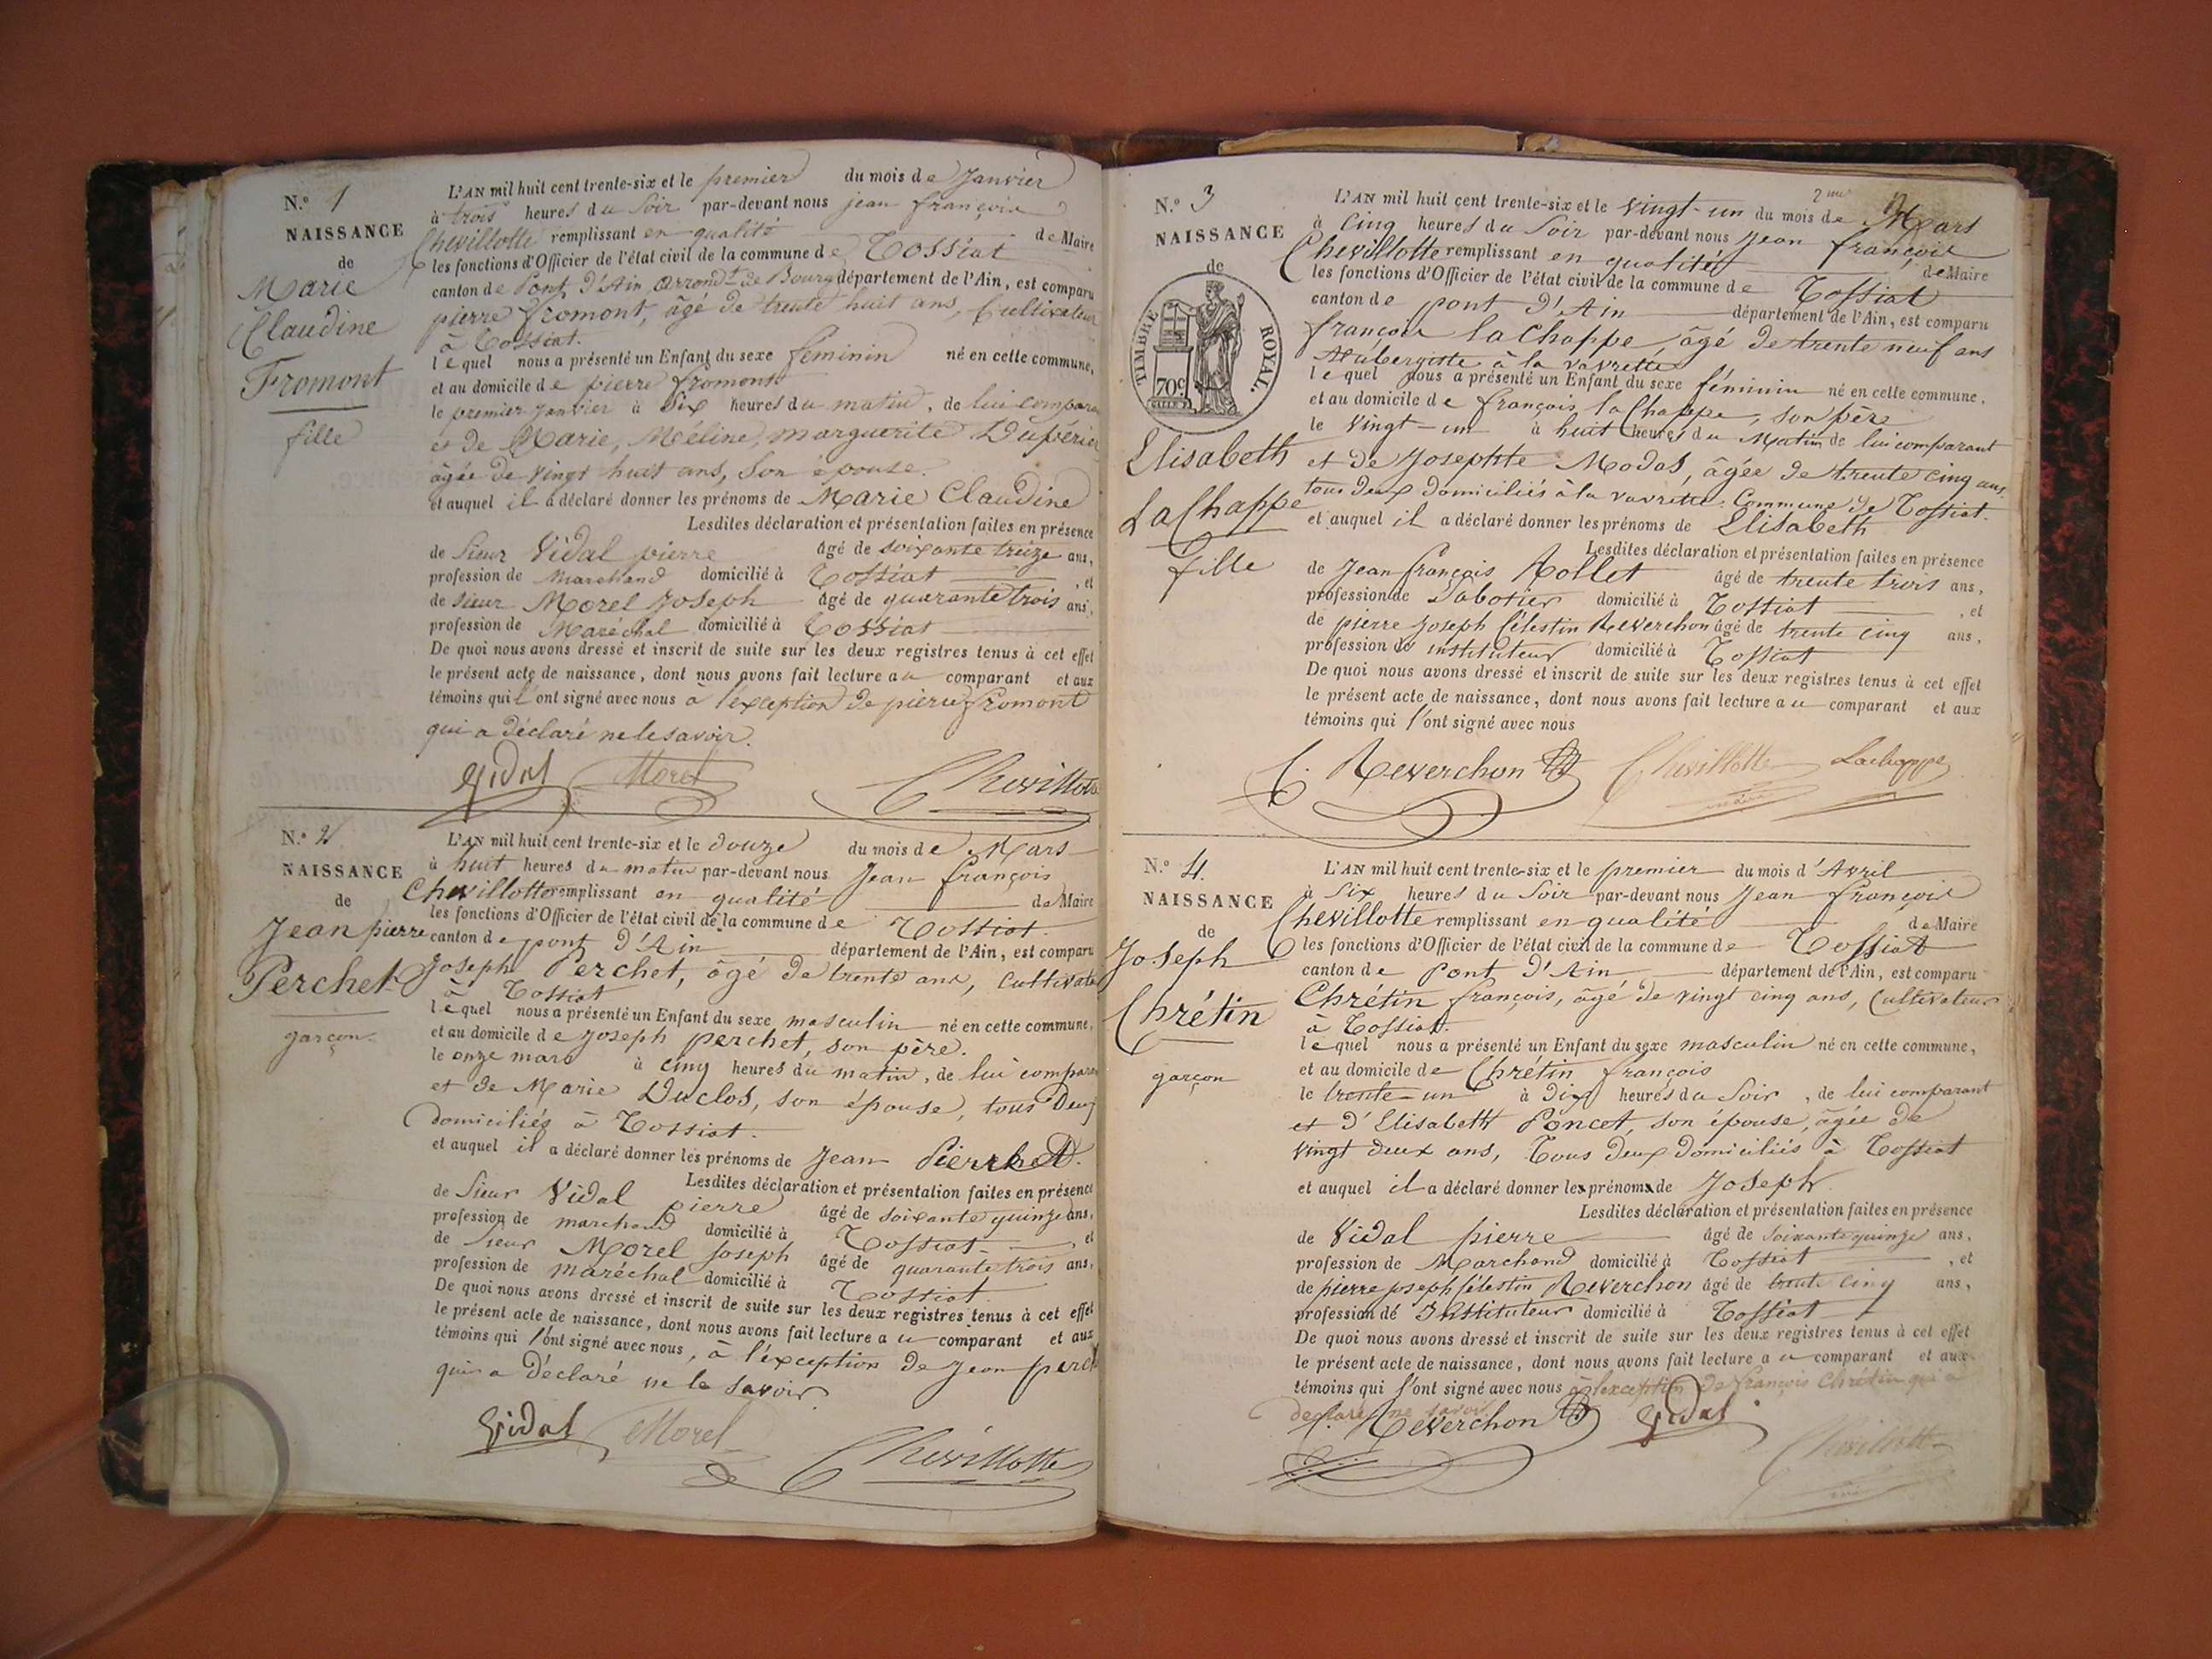 N.º 1
NAISSANCE
de
Marie
Claudine
Fromont
fille
L'AN mil huit cent trente-six et le premier du mois de Janvier
à trois heures du Soir par-devant nous jean françois
Chevillotte remplissant en qualité de Maire
les fonctions d'Officier de l'état civil de la commune de Tossiat
canton de Pont d'Ain, arrondt de Bourg département de l'Ain, est comparu
pierre fromont, âgé de trente huit ans, Cultivateur
à Tossiat.
lequel nous a présenté un Enfant du sexe féminin né en cette commune,
et au domicile de pierre fromont
le premier janvier à Six heures du matin, de lui comparant
et de Marie, Méline, marguerite Dupérier
âgée de vingt huit ans, Son épouse.
et auquel il a déclaré donner les prénoms de Marie Claudine
Lesdites déclaration et présentation faites en présence
de Sieur Vidal pierre âgé de soixante treize ans,
profession de Marchand domicilié à Tossiat , et
de sieur Morel Joseph âgé de quarante trois ans,
profession de Maréchal domicilié à Tossiat
De quoi nous avons dressé et inscrit de suite sur les deux registres tenus à cet effet
le présent acte de naissance, dont nous avons fait lecture au comparant et aux
témoins qui l'ont signé avec nous à l'exception de pierre fromont
qui a déclaré ne le savoir.
Vidal Morel Chevillotte
N.º 2
NAISSANCE
de
Jean pierre
Perchet
garçon
L'AN mil huit cent trente-six et le douze du mois de Mars
à huit heures du matin par-devant nous Jean françois
Chevillotte remplissant en qualité de Maire
les fonctions d'Officier de l'état civil de la commune de Tossiat
canton de pont d'Ain département de l'Ain, est comparu
Joseph Perchet, âgé de trente ans, Cultivateur
à Tossiat
lequel nous a présenté un Enfant du sexe masculin né en cette commune,
et au domicile de Joseph perchet, son père.
le onze mars à cinq heures du matin, de lui comparant
et de Marie Duclos, son épouse, tous Deux
domiciliés à Tossiat.
et auquel il a déclaré donner les prénoms de Jean
Lesdites déclaration et présentation faites en présence
de Sieur Vidal pierre âgé de soixante quinze ans,
profession de marchand domicilié à Tossiat et
de Sieur Morel Joseph âgé de quarante trois ans,
profession de maréchal domicilié à Tossiat
De quoi nous avons dressé et inscrit de suite sur les deux registres tenus à cet effet
le présent acte de naissance, dont nous avons fait lecture au comparant et aux
témoins qui l'ont signé avec nous, à l'exception de Jean perch
qui a déclaré ne le savoir
Vidal Morel Chevillotte
N.º 3
NAISSANCE
de
TIMBRE ROYAL.
70c
Elisabeth
LaChappe
fille
2me
L'AN mil huit cent trente-six et le vingt-un du mois de Mars
à Cinq heures du Soir par-devant nous Jean françois
Chevillotte remplissant en qualité de Maire
les fonctions d'Officier de l'état civil de la commune de Tossiat
canton de pont d'Ain département de l'Ain, est comparu
françois laChappe âgé de trente neuf ans
Aubergiste à la vavrette
lequel nous a présenté un Enfant du sexe féminin né en cette commune,
et au domicile de françois laChappe, son père
le vingt-un à huit heures du Matin de lui comparant
et de Josephte Modas, âgée de trente cinq ans,
tous deux domiciliés à la vavrette Commune de Tossiat.
et auquel il a déclaré donner les prénoms de Elisabeth
Lesdites déclaration et présentation faites en présence
de Jean françois Rollet âgé de trente trois ans,
profession de Sabotier domicilié à Tossiat , et
de pierre Joseph Célestin Reverchon âgé de trente cinq ans,
profession de instituteur domicilié à Tossiat
De quoi nous avons dressé et inscrit de suite sur les deux registres tenus à cet effet
le présent acte de naissance, dont nous avons fait lecture au comparant et aux
témoins qui l'ont signé avec nous
C. Reverchon Chevillotte Lachappe
N.º 4.
NAISSANCE
de
Joseph
Chrétin
garçon
L'AN mil huit cent trente-six et le premier du mois d'Avril
à Six heures du Soir par-devant nous Jean françois
Chevillotte remplissant en qualité de Maire
les fonctions d'Officier de l'état civil de la commune de Tossiat
canton de Pont d'Ain département de l'Ain, est comparu
Chrétin françois, âgé de vingt cinq ans, Cultivateur
à Tossiat.
lequel nous a présenté un Enfant du sexe masculin né en cette commune,
et au domicile de Chrétin françois
le trente-un à dix heures du Soir , de lui comparant
et d'Elisabeth Poncet, son épouse, âgée de
vingt deux ans, Tous deux domiciliés à Tossiat
et auquel il a déclaré donner les prénoms de Joseph
Lesdites déclaration et présentation faites en présence
de Vidal pierre âgé de soixante quinze ans,
profession de Marchand domicilié à Tossiat , et
de pierre joseph Célestin Reverchon âgé de trente cinq ans,
profession de Instituteur domicilié à Tossiat
De quoi nous avons dressé et inscrit de suite sur les deux registres tenus à cet effet
le présent acte de naissance, dont nous avons fait lecture au comparant et aux
témoins qui l'ont signé avec nous à l'exception de françois Chrétin qui a
déclaré ne savoir
C. Reverchon Vidal
Chevillotte